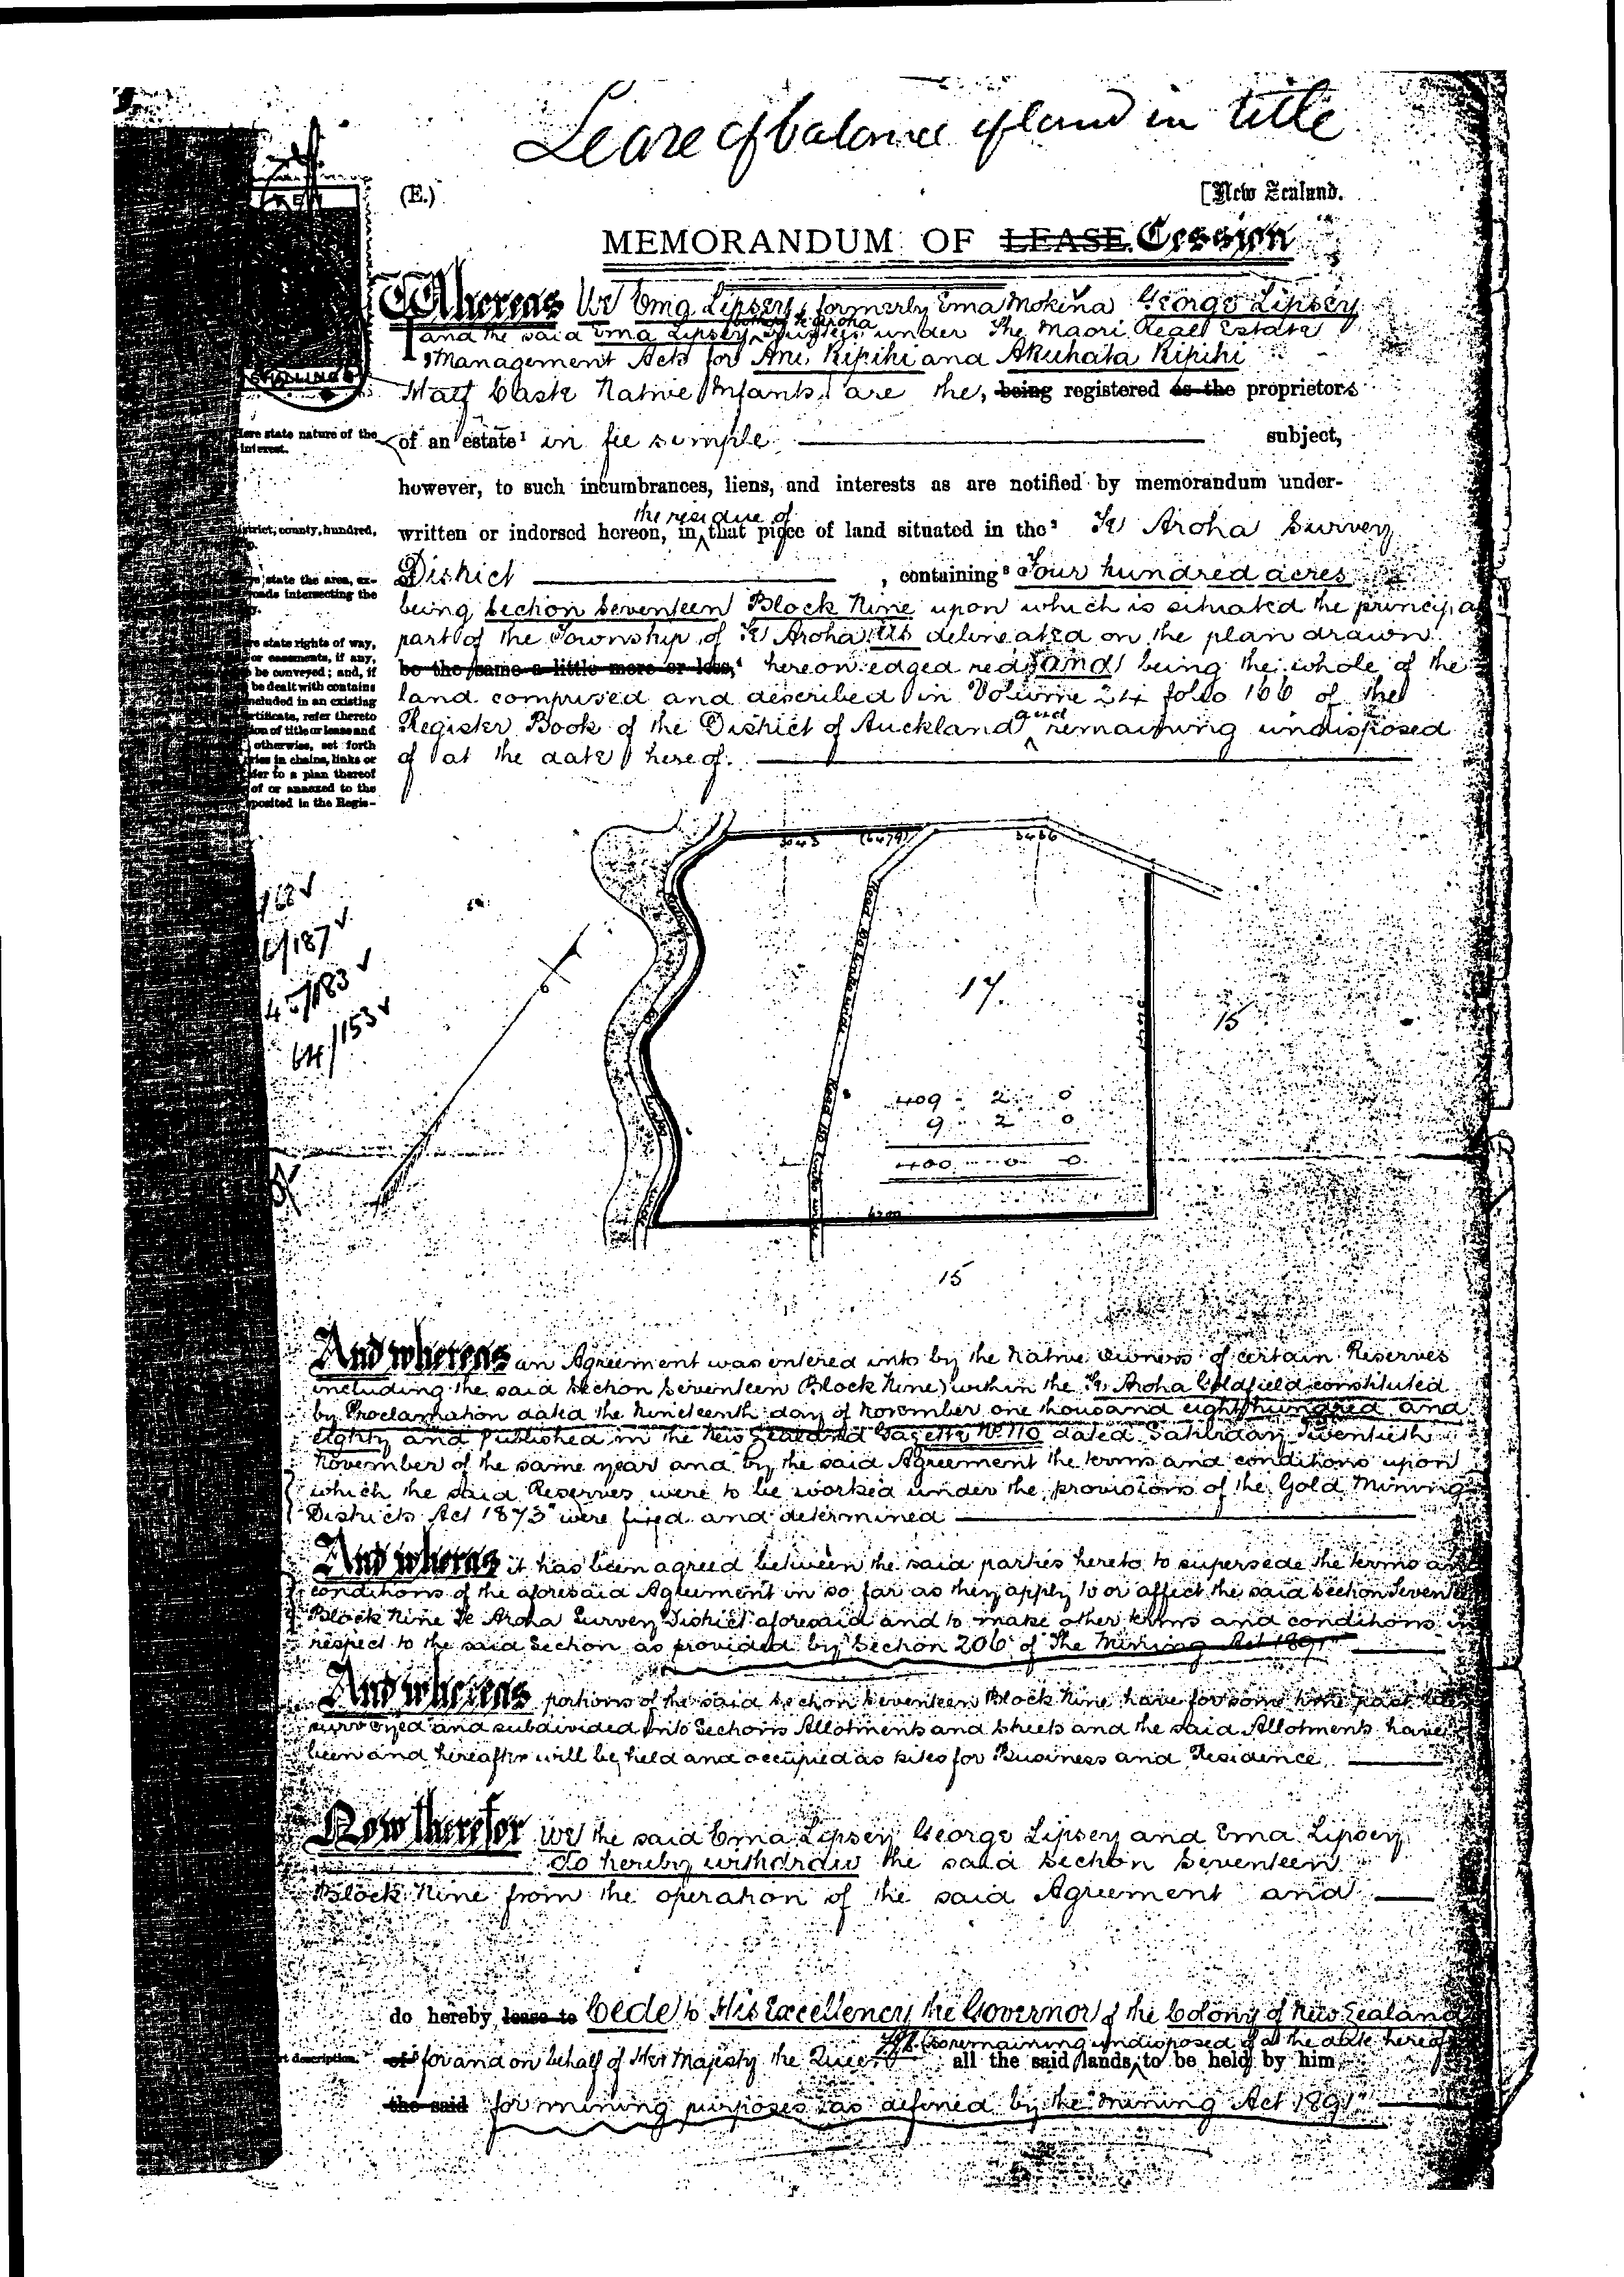 Lease of balance of land in title
(E.) [New Zealand.
MEMORANDUM OF LEASE. Cession
Whereas We Ema Lipsey, formerly Ema Mokena George Lipsey
and the said Ema Lipsey under The Maori Real Estate
Management Acts for Ani Ripihi and Akuhata Ripihi
Half Caste Native Infants are the, being registered as the proprietors
Here state nature of the interest.
of an estate¹ in fee simple subject,
however, to such incumbrances, liens, and interests as are notified by memorandum under-
the residue of
district, county, hundred,
written or indorsed hereon, in that piece of land situated in the² Te Aroha Survey
District , containing³ Four hundred acres
state the area, ex-
roads intersecting the
being Section Seventeen Block Nine upon which is situated the principal
part of the Township of Te Aroha as delineated on the plan drawn
state rights of way,
or easements, if any,
be conveyed; and, if
be dealt with contains
included in an existing
certificate, refer thereto
tion of title or lease and
otherwise, set forth
ries in chains, links or
fer to a plan thereof
of or annexed to the
posited in the Regis-
be the same a little more or less,⁴ hereon edged red and being the whole of the
land comprised and described in Volume 24 folio 166 of the
Register Book of the District of Auckland and remaining undisposed
of at the date hereof.
3045 (6479) 3466
168 ✓
/187 ✓
45/183 ✓
64/153 ✓
17.
15
409 - 2 - 0
9 - 2 - 0
400 - 0 - 0
15
And whereas an Agreement was entered into by the Native Owners of certain Reserves
including the said Section Seventeen (Block Nine) within the Te Aroha Goldfield constituted
by Proclamation dated the Nineteenth day of November one thousand eight hundred and
eighty and published in the New Zealand Gazette No 110 dated Saturday Twentieth
November of the same year and by the said Agreement the terms and conditions upon
which the said Reserves were to be worked under the provisions of the Gold Mining
Districts Act 1873" were fixed and determined
And wheras it has been agreed between the said parties hereto to supersede the terms and
conditions of the aforesaid Agreement in so far as they apply to or affect the said Section Sevente
Block Nine Te Aroha Survey District aforesaid and to make other terms and conditions in
respect to the said Section as provided by Section 206 of The Mining Act 1891"
And whereas portions of the said Section Seventeen Block Nine have for some time past been
surveyed and subdivided into Sections Allotments and Streets and the said Allotments have
been and hereafter will be held and occupied as sites for Business and Residence.
Now therefor We the said Ema Lipsey George Lipsey and Ema Lipsey
do hereby withdraw the said Section Seventeen
Block Nine from the operation of the said Agreement and
do hereby lease to Cede to His Excellency the Governor of the Colony of New Zealand
(so remaining undisposed of at the date hereof)
rt description.
of⁵ for and on behalf of Her Majesty the Queen all the said lands, to be held by him
the said for mining purposes as defined by the "Mining Act 1891"